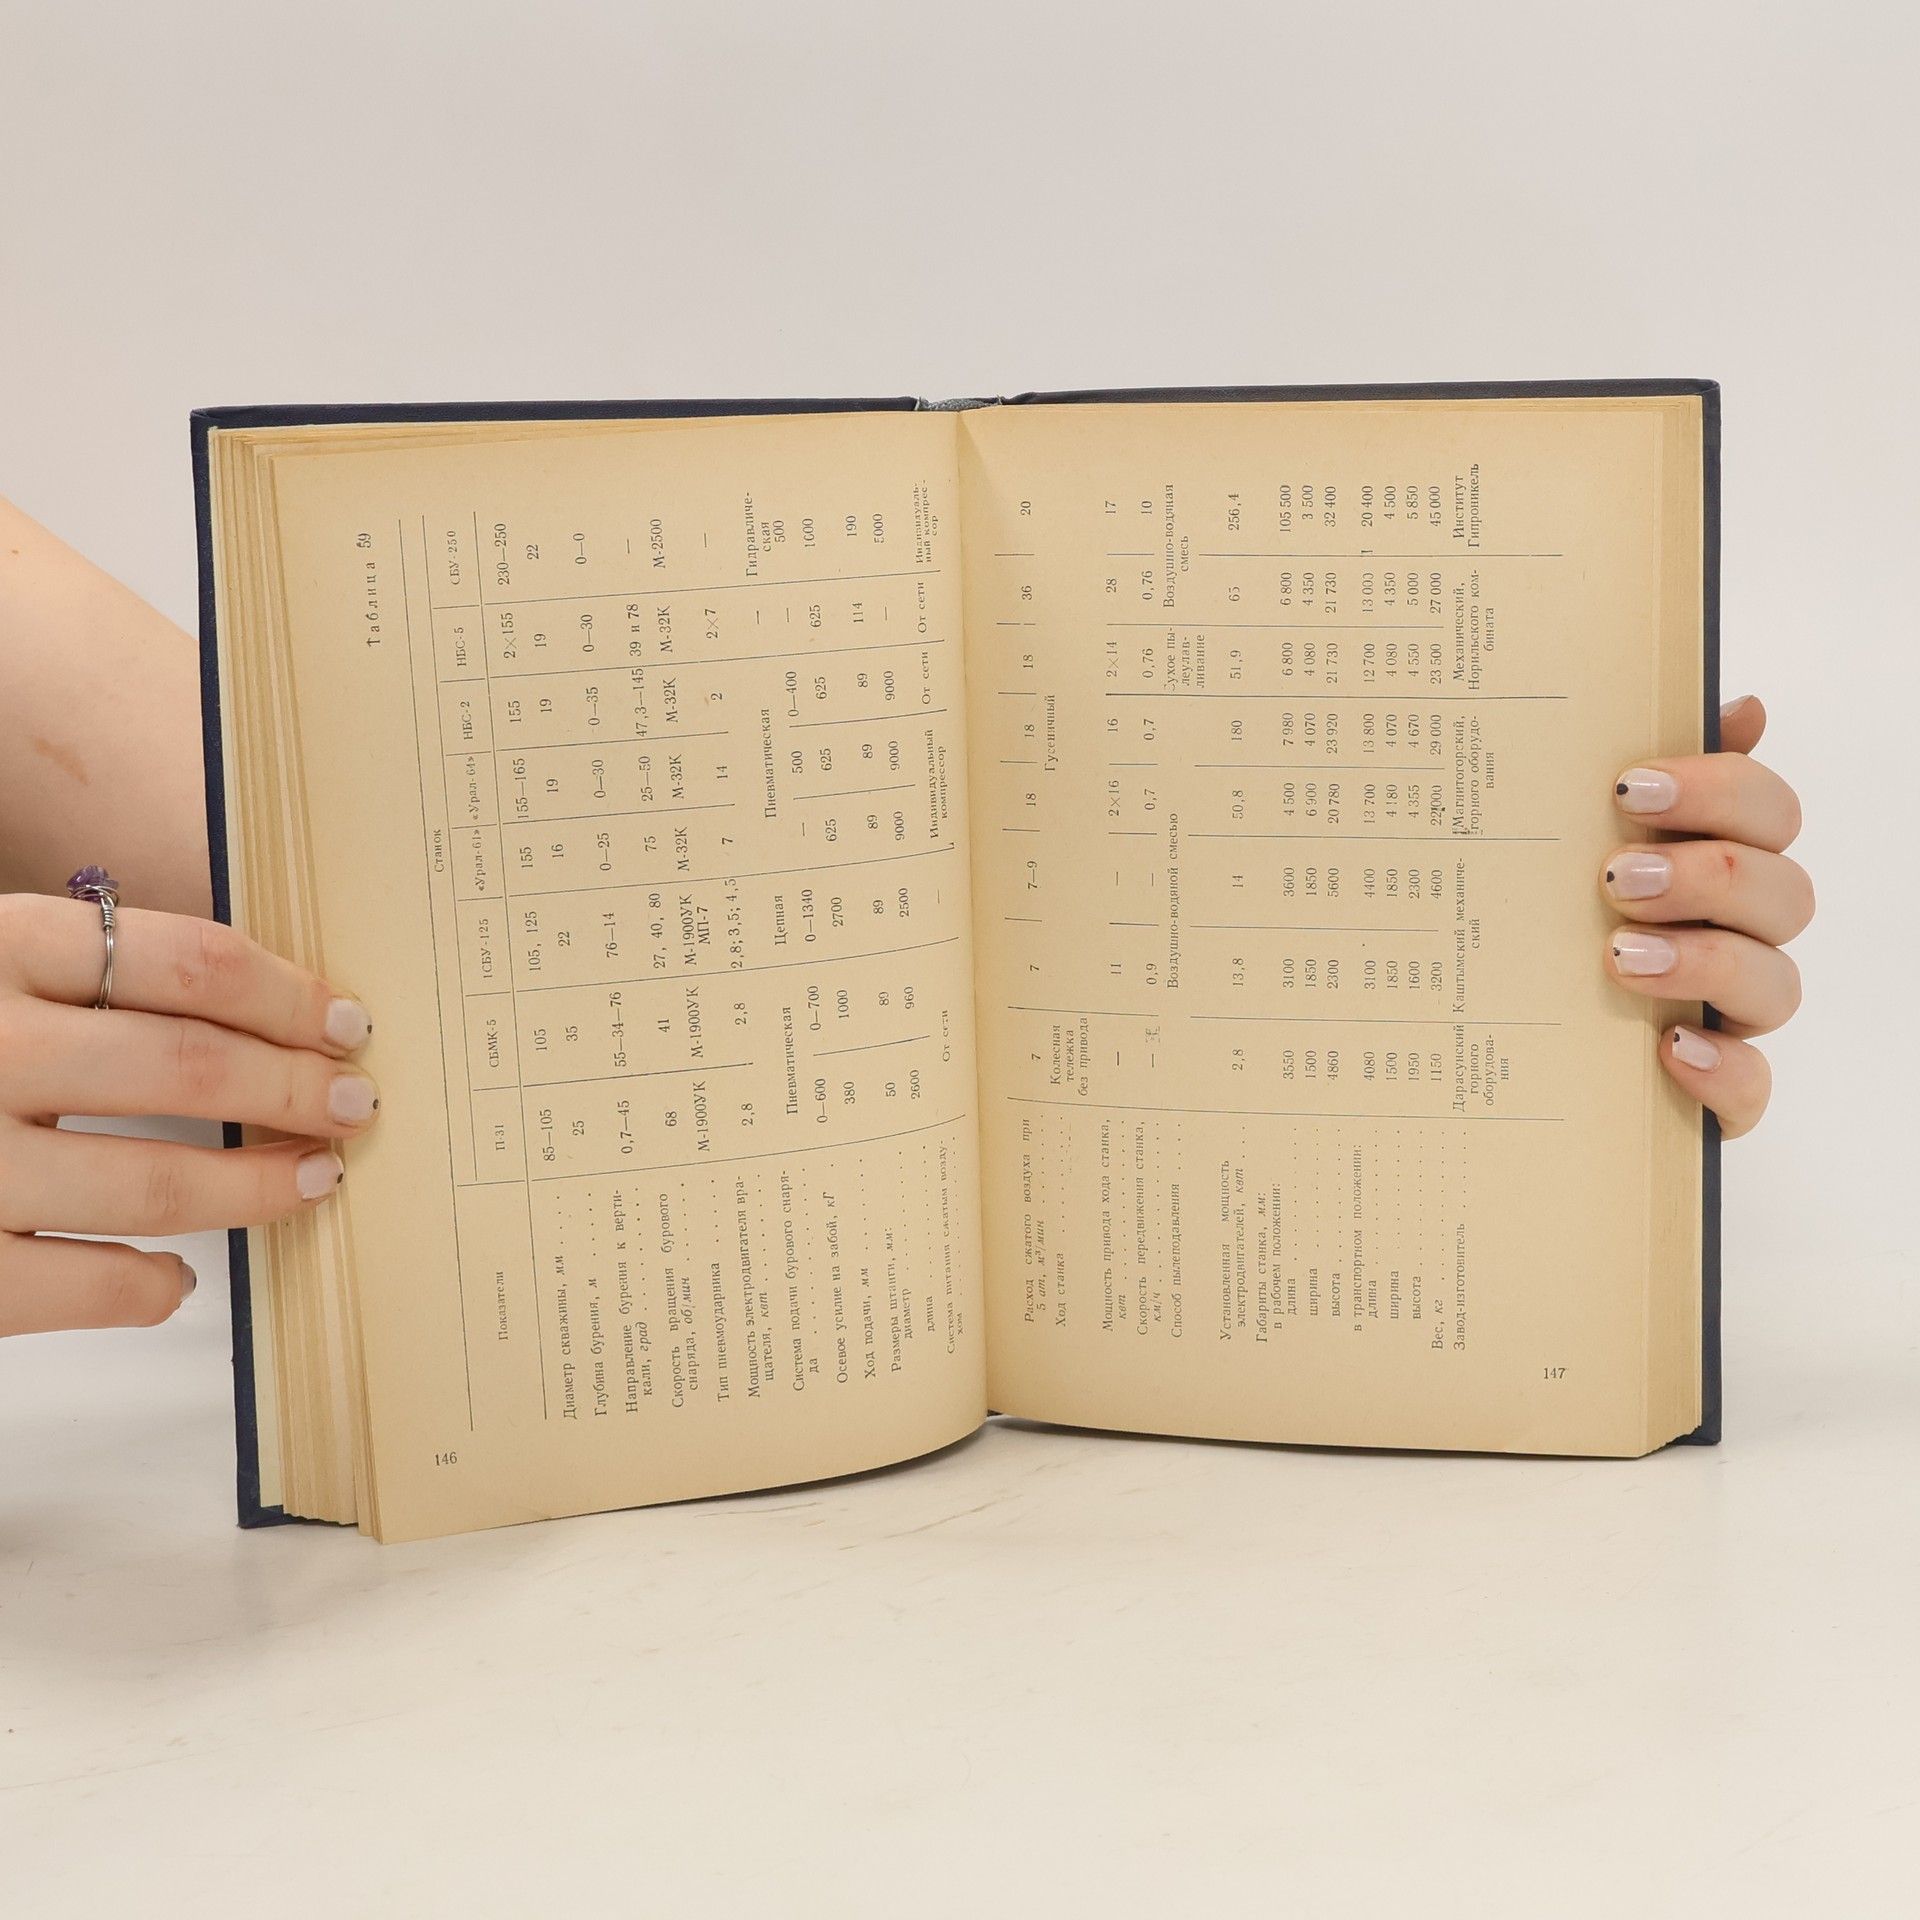 146
Таблица 59
Показатели
Станок
П-31 СБМК-5 1СБУ-125 «Урал-61» «Урал-64» НБС-2 НБС-5 СБУ-250
Диаметр скважины, мм . . . . 85—105 105 105, 125 155 155—165 155 2×155 230—250
Глубина бурения, м . . . . . 25 35 22 16 19 19 19 22
Направление бурения к верти-
кали, град . . . . . . . . 0,7—45 55—34—76 76—14 0—25 0—30 0—35 0—30 0—0
Скорость вращения бурового
снаряда, об/мин . . . . . . 68 41 27, 40, 80 75 25—50 47,3—145 39 и 78 —
Тип пневмоударника . . . . . М-1900УК М-1900УК М-1900УК М-32К М-32К М-32К М-32К М-2500
МП-7
Мощность электродвигателя вра-
щателя, квт . . . . . . . . 2,8 2,8 2,8; 3,5; 4,5 7 14 2 2×7 —
Система подачи бурового снаря-
да . . . . . . . . . . Пневматическая Цепная Пневматическая — Гидравличе-
ская
0—600 0—700 0—1340 — 500 0—400 — 500
Осевое усилие на забой, кГ . 380 1000 2700 625 625 625 625 1000
Ход подачи, мм . . . . . .
Размеры штанги, мм:
диаметр . . . . . . . . 50 89 89 89 89 89 114 190
длина . . . . . . . . . 2600 960 2500 9000 9000 9000 — 5000
Система питания сжатым возду-
хом . . . . . . . . . . От сети — Индивидуальный
компрессор От сети От сети Индивидуаль-
ный компрес-
сор
Расход сжатого воздуха при
5 ат, м³/мин . . . . . . . 7 7 7—9 18 18 18 36 20
Ход станка . . . . . . . . Колесная
тележка
без привода Гусеничный
Мощность привода хода станка,
квт . . . . . . . . . . — 11 — 2×16 16 2×14 28 17
Скорость передвижения станка,
км/ч . . . . . . . . . — 0,9 — 0,7 0,7 0,76 0,76 10
Способ пылеподавления . . . . Воздушно-водяной смесью Сухое пы-
леулав-
ливание Воздушно-водяная
смесь
Установленная мощность
электродвигателей, квт . . . 2,8 13,8 14 50,8 180 51,9 65 256,4
Габариты станка, мм:
в рабочем положении:
длина . . . . . . . . 3550 3100 3600 4 500 7 980 6 800 6 800 105 500
ширина . . . . . . . 1500 1850 1850 6 900 4 070 4 080 4 350 3 500
высота . . . . . . . 4860 2300 5600 20 780 23 920 21 730 21 730 32 400
в транспортном положении:
длина . . . . . . . . 4080 3100 4400 13 700 13 800 12 700 13 000 20 400
ширина . . . . . . . 1500 1850 1850 4 180 4 070 4 080 4 350 4 500
высота . . . . . . . 1950 1600 2300 4 355 4 670 4 550 5 000 5 850
Вес, кг . . . . . . . . . 1150 3200 4600 22 000 29 000 23 500 27 000 45 000
Завод-изготовитель . . . . . Дарасунский
горного
оборудова-
ния Каштымский механиче-
ский Магнитогорский,
горного оборудо-
вания Механический,
Норильского ком-
бината Институт
Гипроникель
147